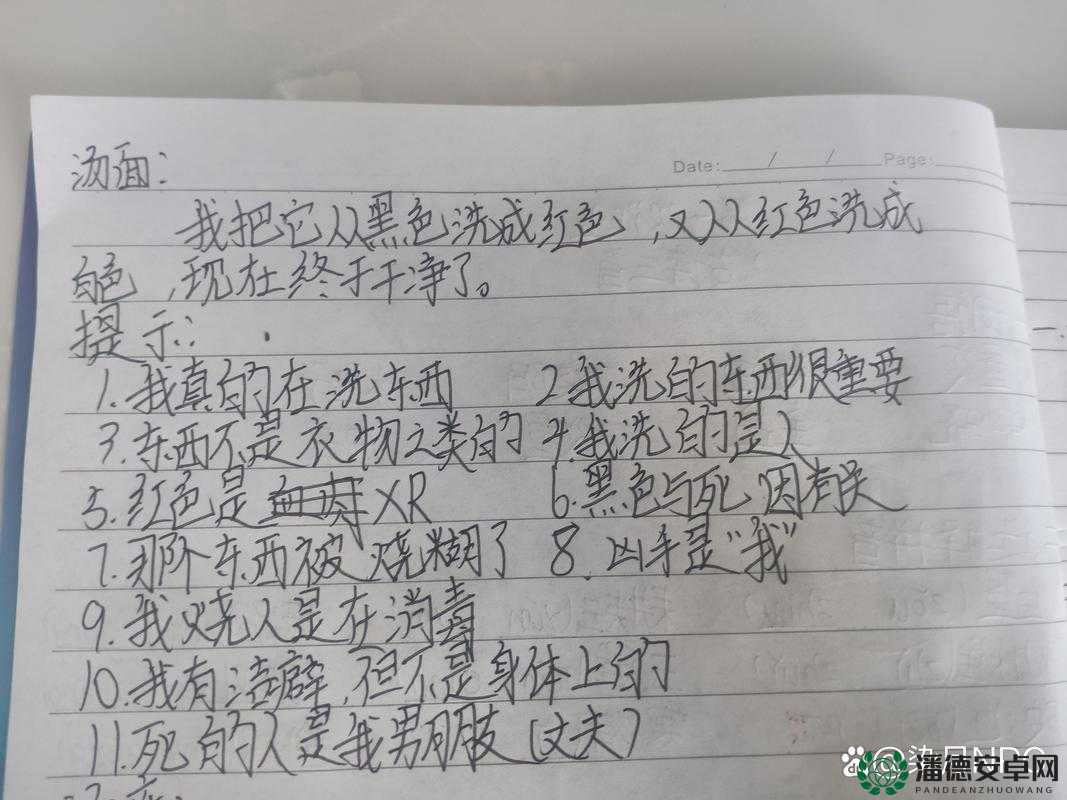 汤面：
Date: / / Page:
我把它从黑色洗成红色，又从红色洗成
白色，现在终于干净了。
提示：
1.我真的在洗东西 2.我洗的东西很重要
3.东西不是衣物之类的 4.我洗的是人
5.红色是 XR 6.黑色与死因有关
7.那个东西被烧糊了 8.凶手是“我”
9.我烧人是在消毒
10.我有洁癖，但不是身体上的
11.死的人是我男朋友（丈夫）
潘德安卓网
PANDEANZHUOWANG